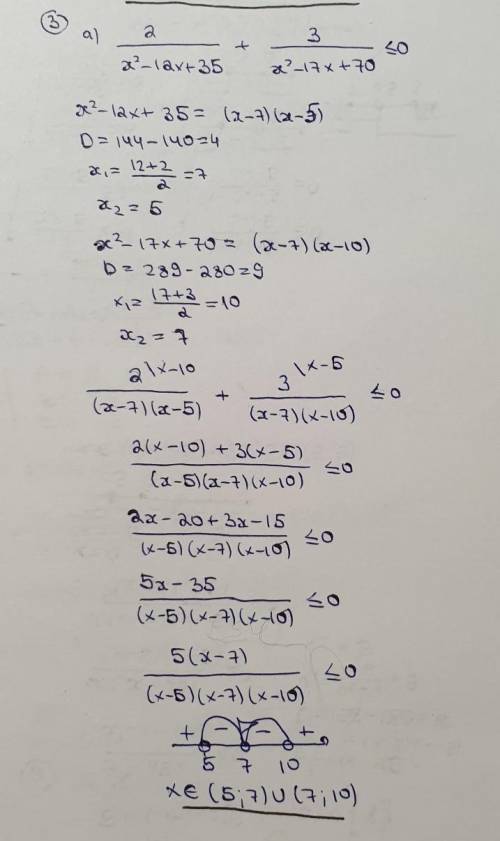 ③ a) 2/(x²-12x+35) + 3/(x²-17x+70) ≤0
x²-12x+35= (x-7)(x-5)
D=144-140=4
x₁= (12+2)/2 =7
x₂ = 5
x²-17x+70= (x-7)(x-10)
D=289-280=9
x₁= (17+3)/2 =10
x₂ = 7
2\x-10/((x-7)(x-5)) + 3\x-5/((x-7)(x-10)) ≤0
(2(x-10)+3(x-5))/((x-5)(x-7)(x-10)) ≤0
(2x-20+3x-15)/((x-5)(x-7)(x-10)) ≤0
(5x-35)/((x-5)(x-7)(x-10)) ≤0
5(x-7)/((x-5)(x-7)(x-10)) ≤0
+ - - +
5 7 10
x∈ (5;7)∪(7;10)